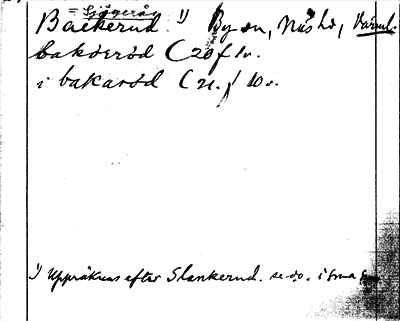 = Sjögerås
Backerud. 1) By sn, Näs hd, Värml.
bakderöd (20 f 1v.
i bakaröd (21. f 10v.
1) Uppräknas efter Slankerud. se do. i sma